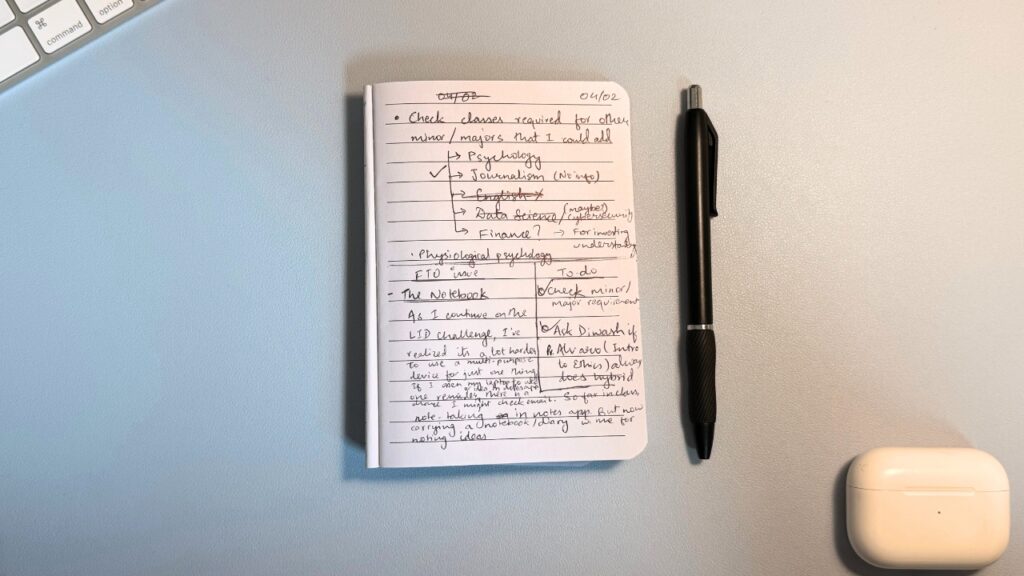 ⌘
command
option
04/02
04/02
• Check classes required for other
minor/majors that I could add
✓ → Psychology
→ Journalism (No info)
→ English x
→ Data Science/(maybe?) cybersecurity
→ Finance? → For investing
understanding
· Physiological psychology
issue
- The Notebook
As I continue on the
LID challenge, I've
realized its a lot harder
to use a multi-purpose
device for just one thing
If I open my laptop to use
one reminder, there is a
chance I might check email. So far in class,
note-taking in notes app. But now
carrying a notebook/diary w me for
noting ideas
To do
✓ Check minor/
major requirement
✓ Ask Diwash if
Pr. Alvaro (Intro
to Ethics) always
does hybrid